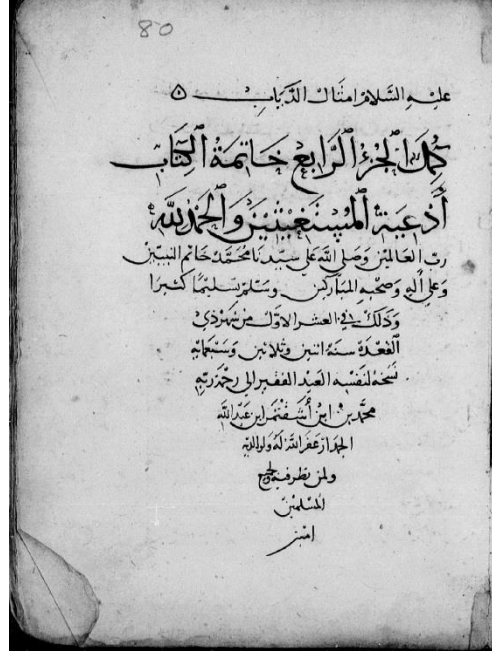 80
عليه السلام امثال الذباب ه
كمل الجزء الرابع خاتمة الكتاب
أدعية المستغيثين والحمد لله
رب العالمين وصلى الله على سيدنا محمد خاتم النبيين
وعلى اله وصحبه المباركين وسلم تسليما كثيرا
وذلك في العشر الاول من شهر ذي
القعدة سنة اثنين وثلاثين وسبعمائة
نسخه لنفسه العبد الفقير الى رحمة ربه
محمد بن ابن ابن عبد الله
غفر الله له ولوالديه
ولمن نظر فيه ولجميع
المسلمين
امين